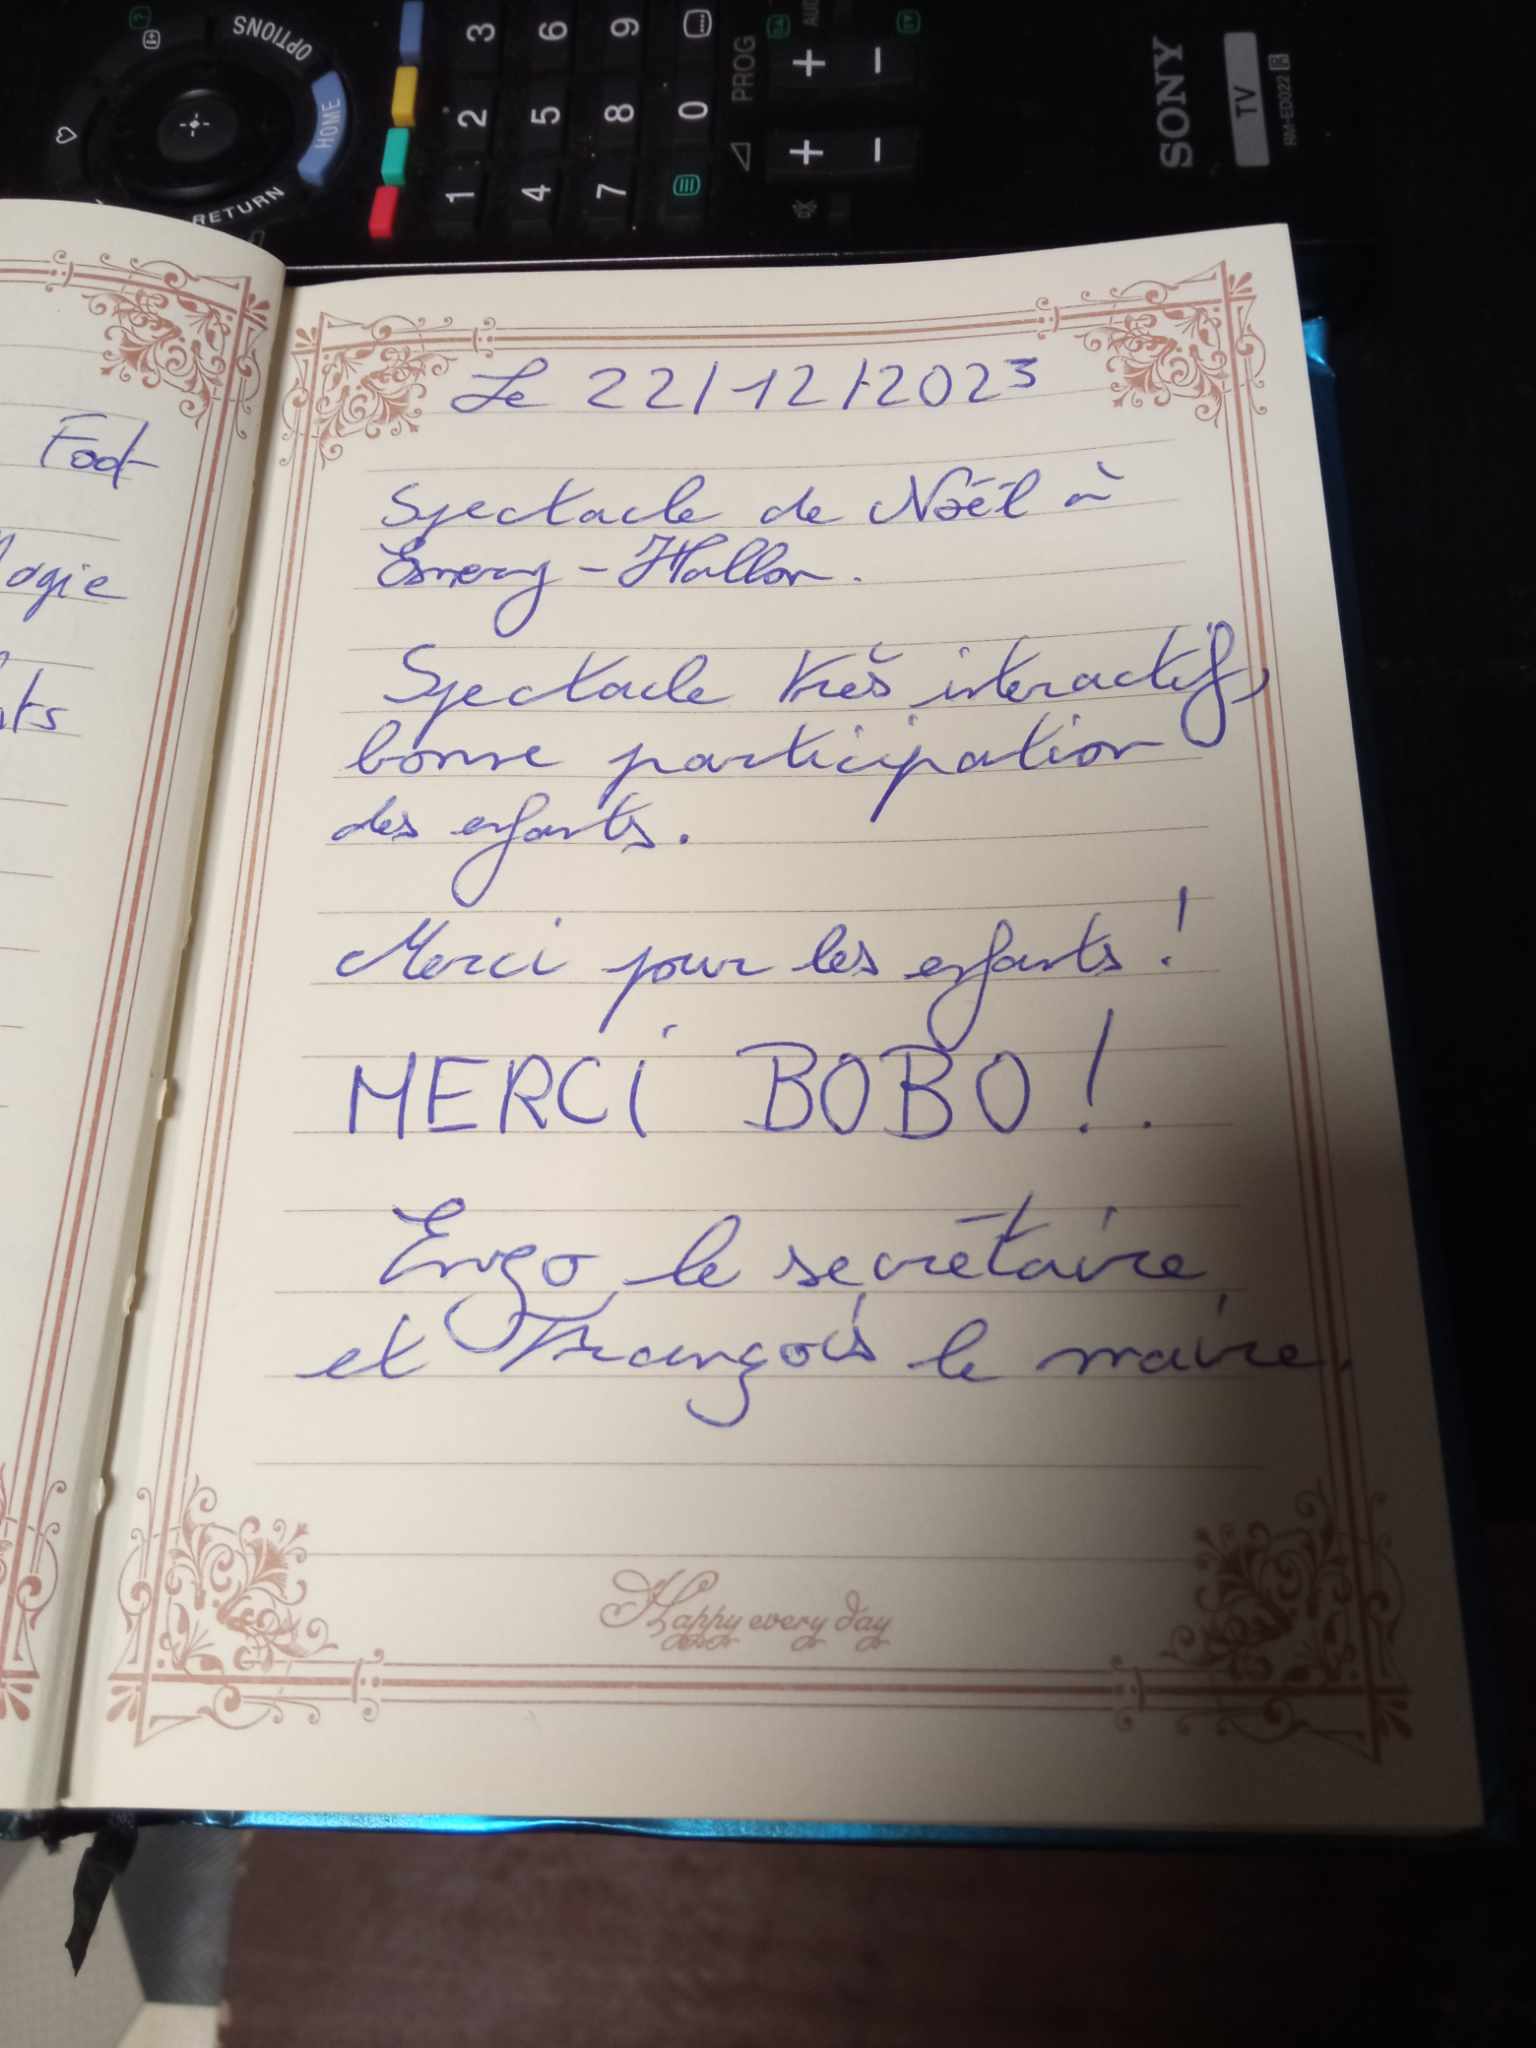 OPTIONS
HOME
RETURN
3 6 9
2 5 8 0
1 4 7
PROG
+ -
+ -
SONY
TV
RM-ED022
Foot
Magie
Le 22/12/2023
Spectacle de Noël à
Esmery-Hallon.
Spectacle très interactif,
bonne participation
des enfants.
Merci pour les enfants !
MERCI BOBO !.
Enzo le secrétaire
et François le maire.
Happy every day